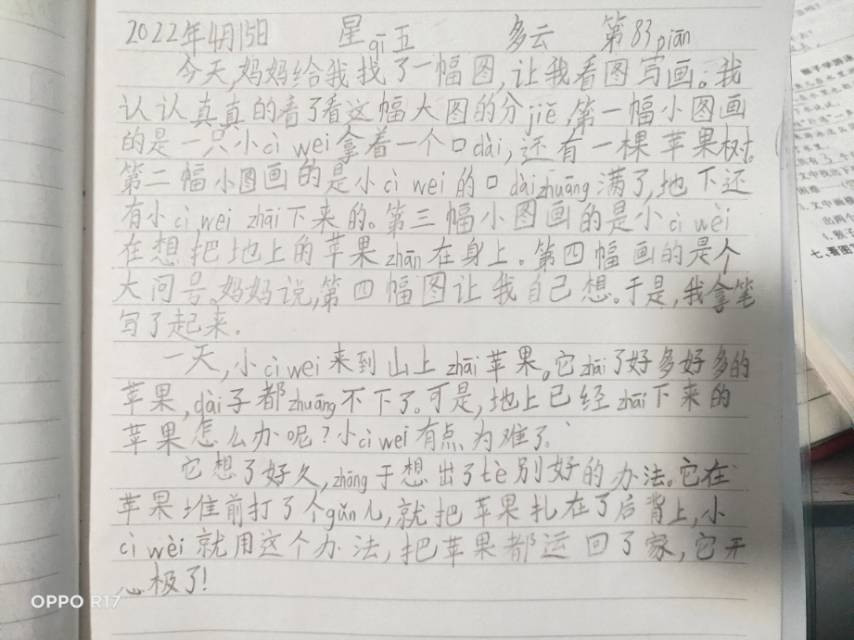 2022年4月15日 星qī五 多云 第83piān
今天,妈妈给我找了一幅图,让我看图写画。我
认认真真的看了看这幅大图的分jiě,第一幅小图画
的是一只小cì wei拿着一个口dài,还有一棵苹果树。
第二幅小图画的是小cì wei的口dàizhuāng满了,地下还
有小cì wei zhāi下来的。第三幅小图画的是小cì wèi
在想把地上的苹果zhān在身上。第四幅画的是个
大问号。妈妈说,第四幅图让我自己想。于是,我拿笔
写了起来。
一天,小cì wei来到山上zhāi苹果。它zhāi了好多好多的
苹果,dài子都zhuāng不下了。可是,地上已经zhāi下来的
苹果怎么办呢?小cì wei有点为难了。
它想了好久,zhōng于想出了tè别好的办法。它在
苹果堆前打了个gǔn儿,就把苹果扎在了后背上,小
cì wèi就用这个办法,把苹果都运回了家,它开
心极了!
OPPO R17